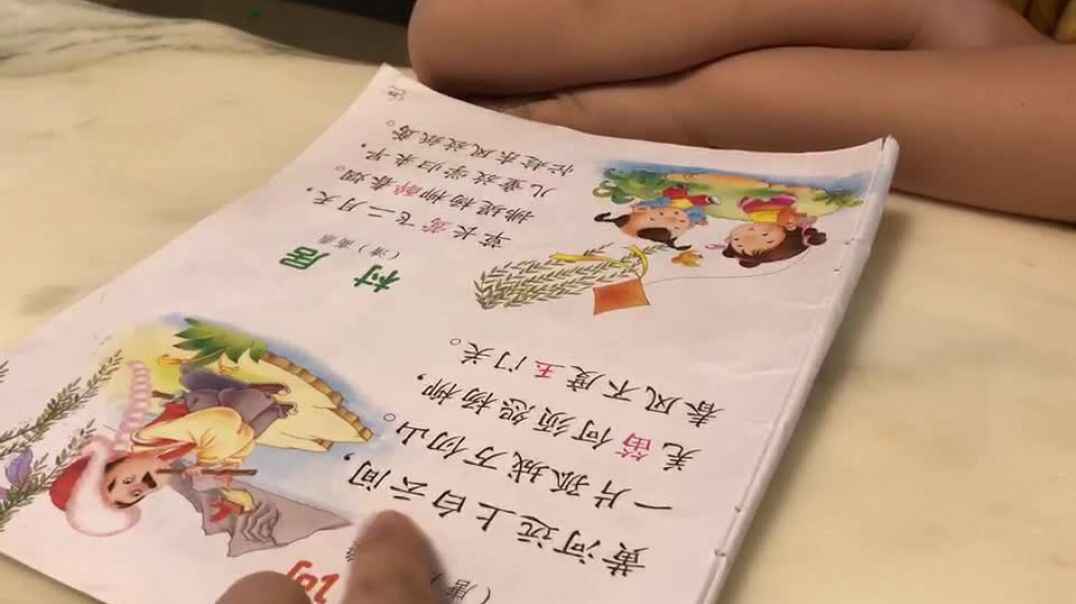 （唐
黄河远上白云间，
一片孤城万仞山。
羌笛何须怨杨柳，
春风不度玉门关。
村居
（清）高鼎
草长莺飞二月天，
拂堤杨柳醉春烟。
儿童放学归来早，
忙趁东风放纸鸢。